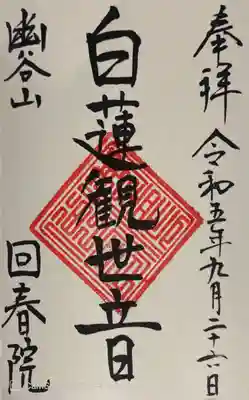 奉拝 令和五年九月二十六日
白蓮観世音
幽谷山 回春院